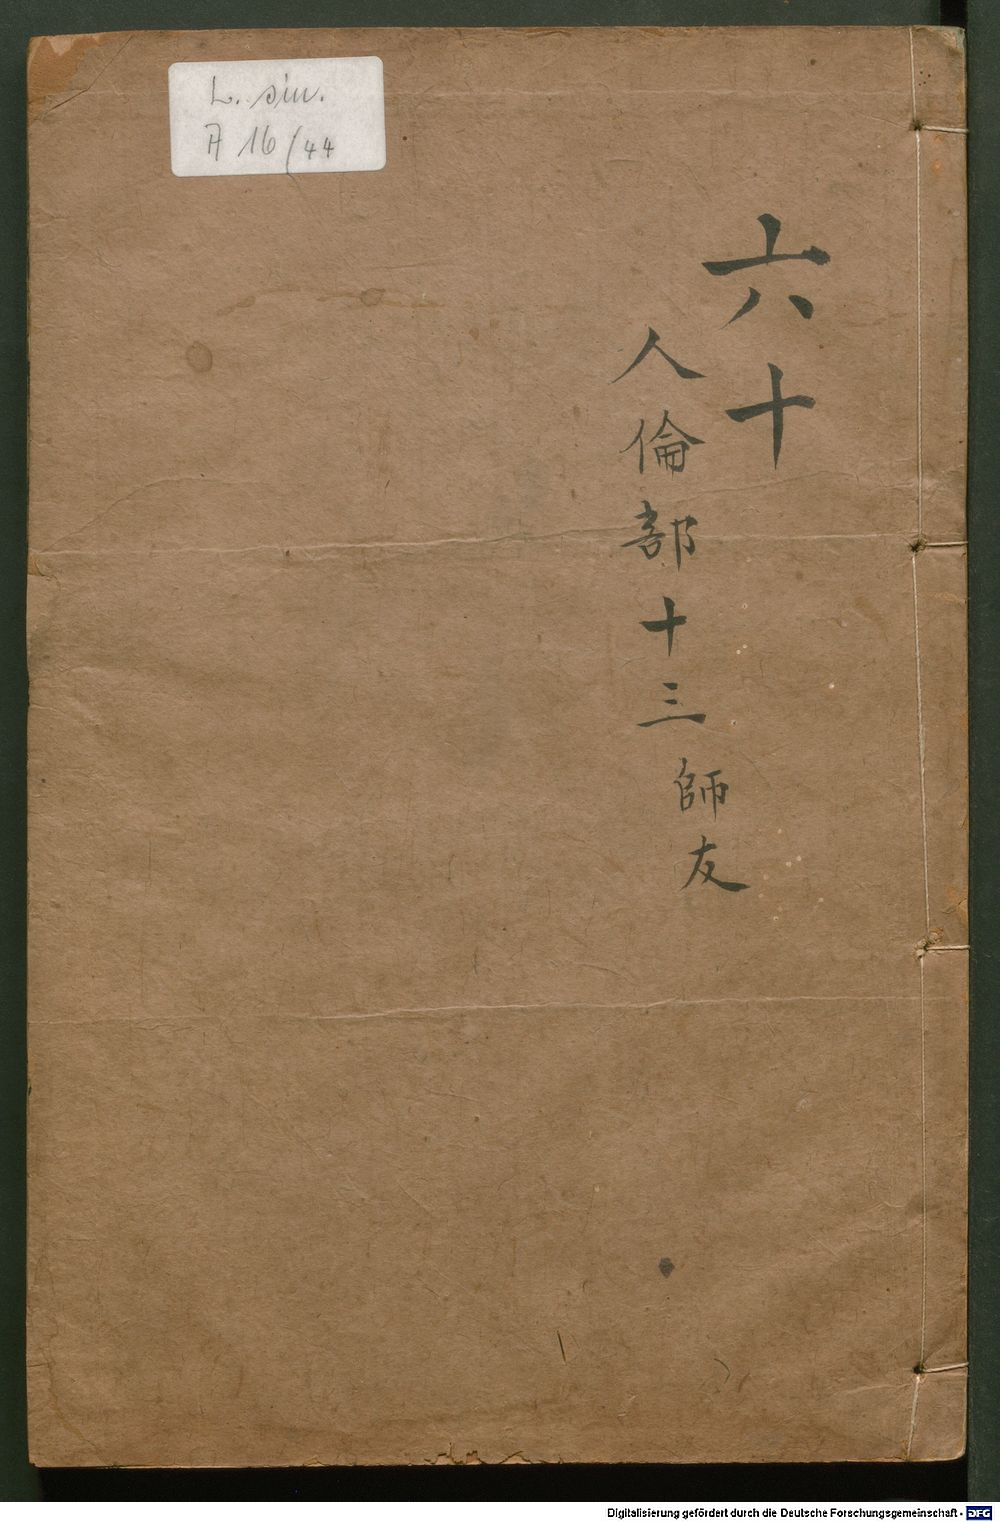 L. sin.
A 16/44
六十
人倫部十三
師友
Digitalisierung gefördert durch die Deutsche Forschungsgemeinschaft - DFG